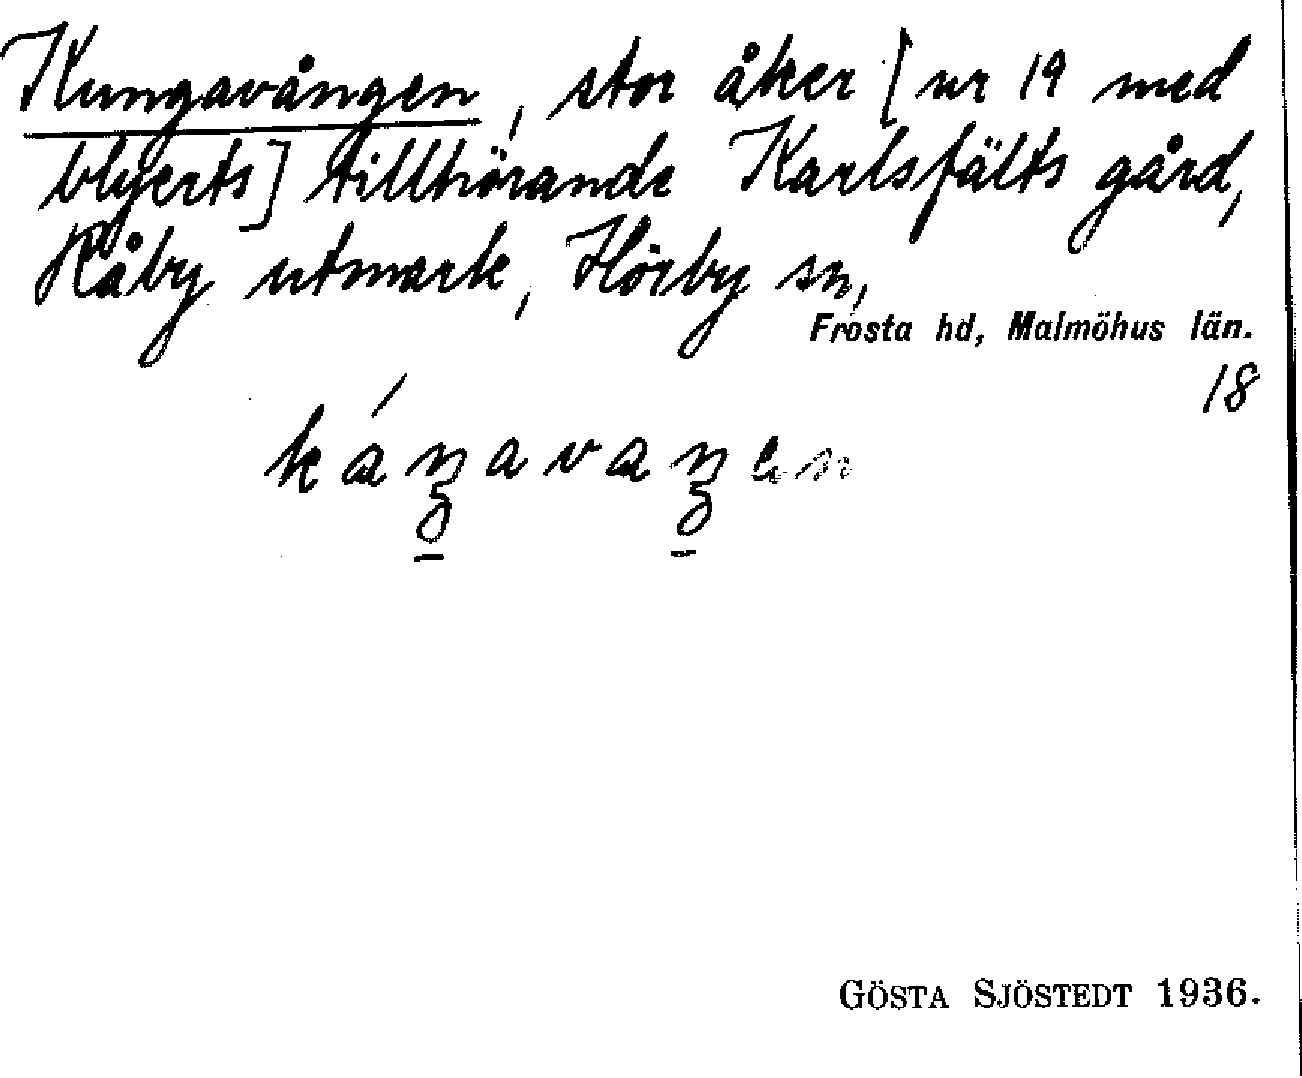 Kungavången, stor åker [nr 19 med
blyerts] tillhörande Karlsfälts gård,
Råby utmark, Hörby sn,
Frosta hd, Malmöhus län.
18
GÖSTA SJÖSTEDT 1936.